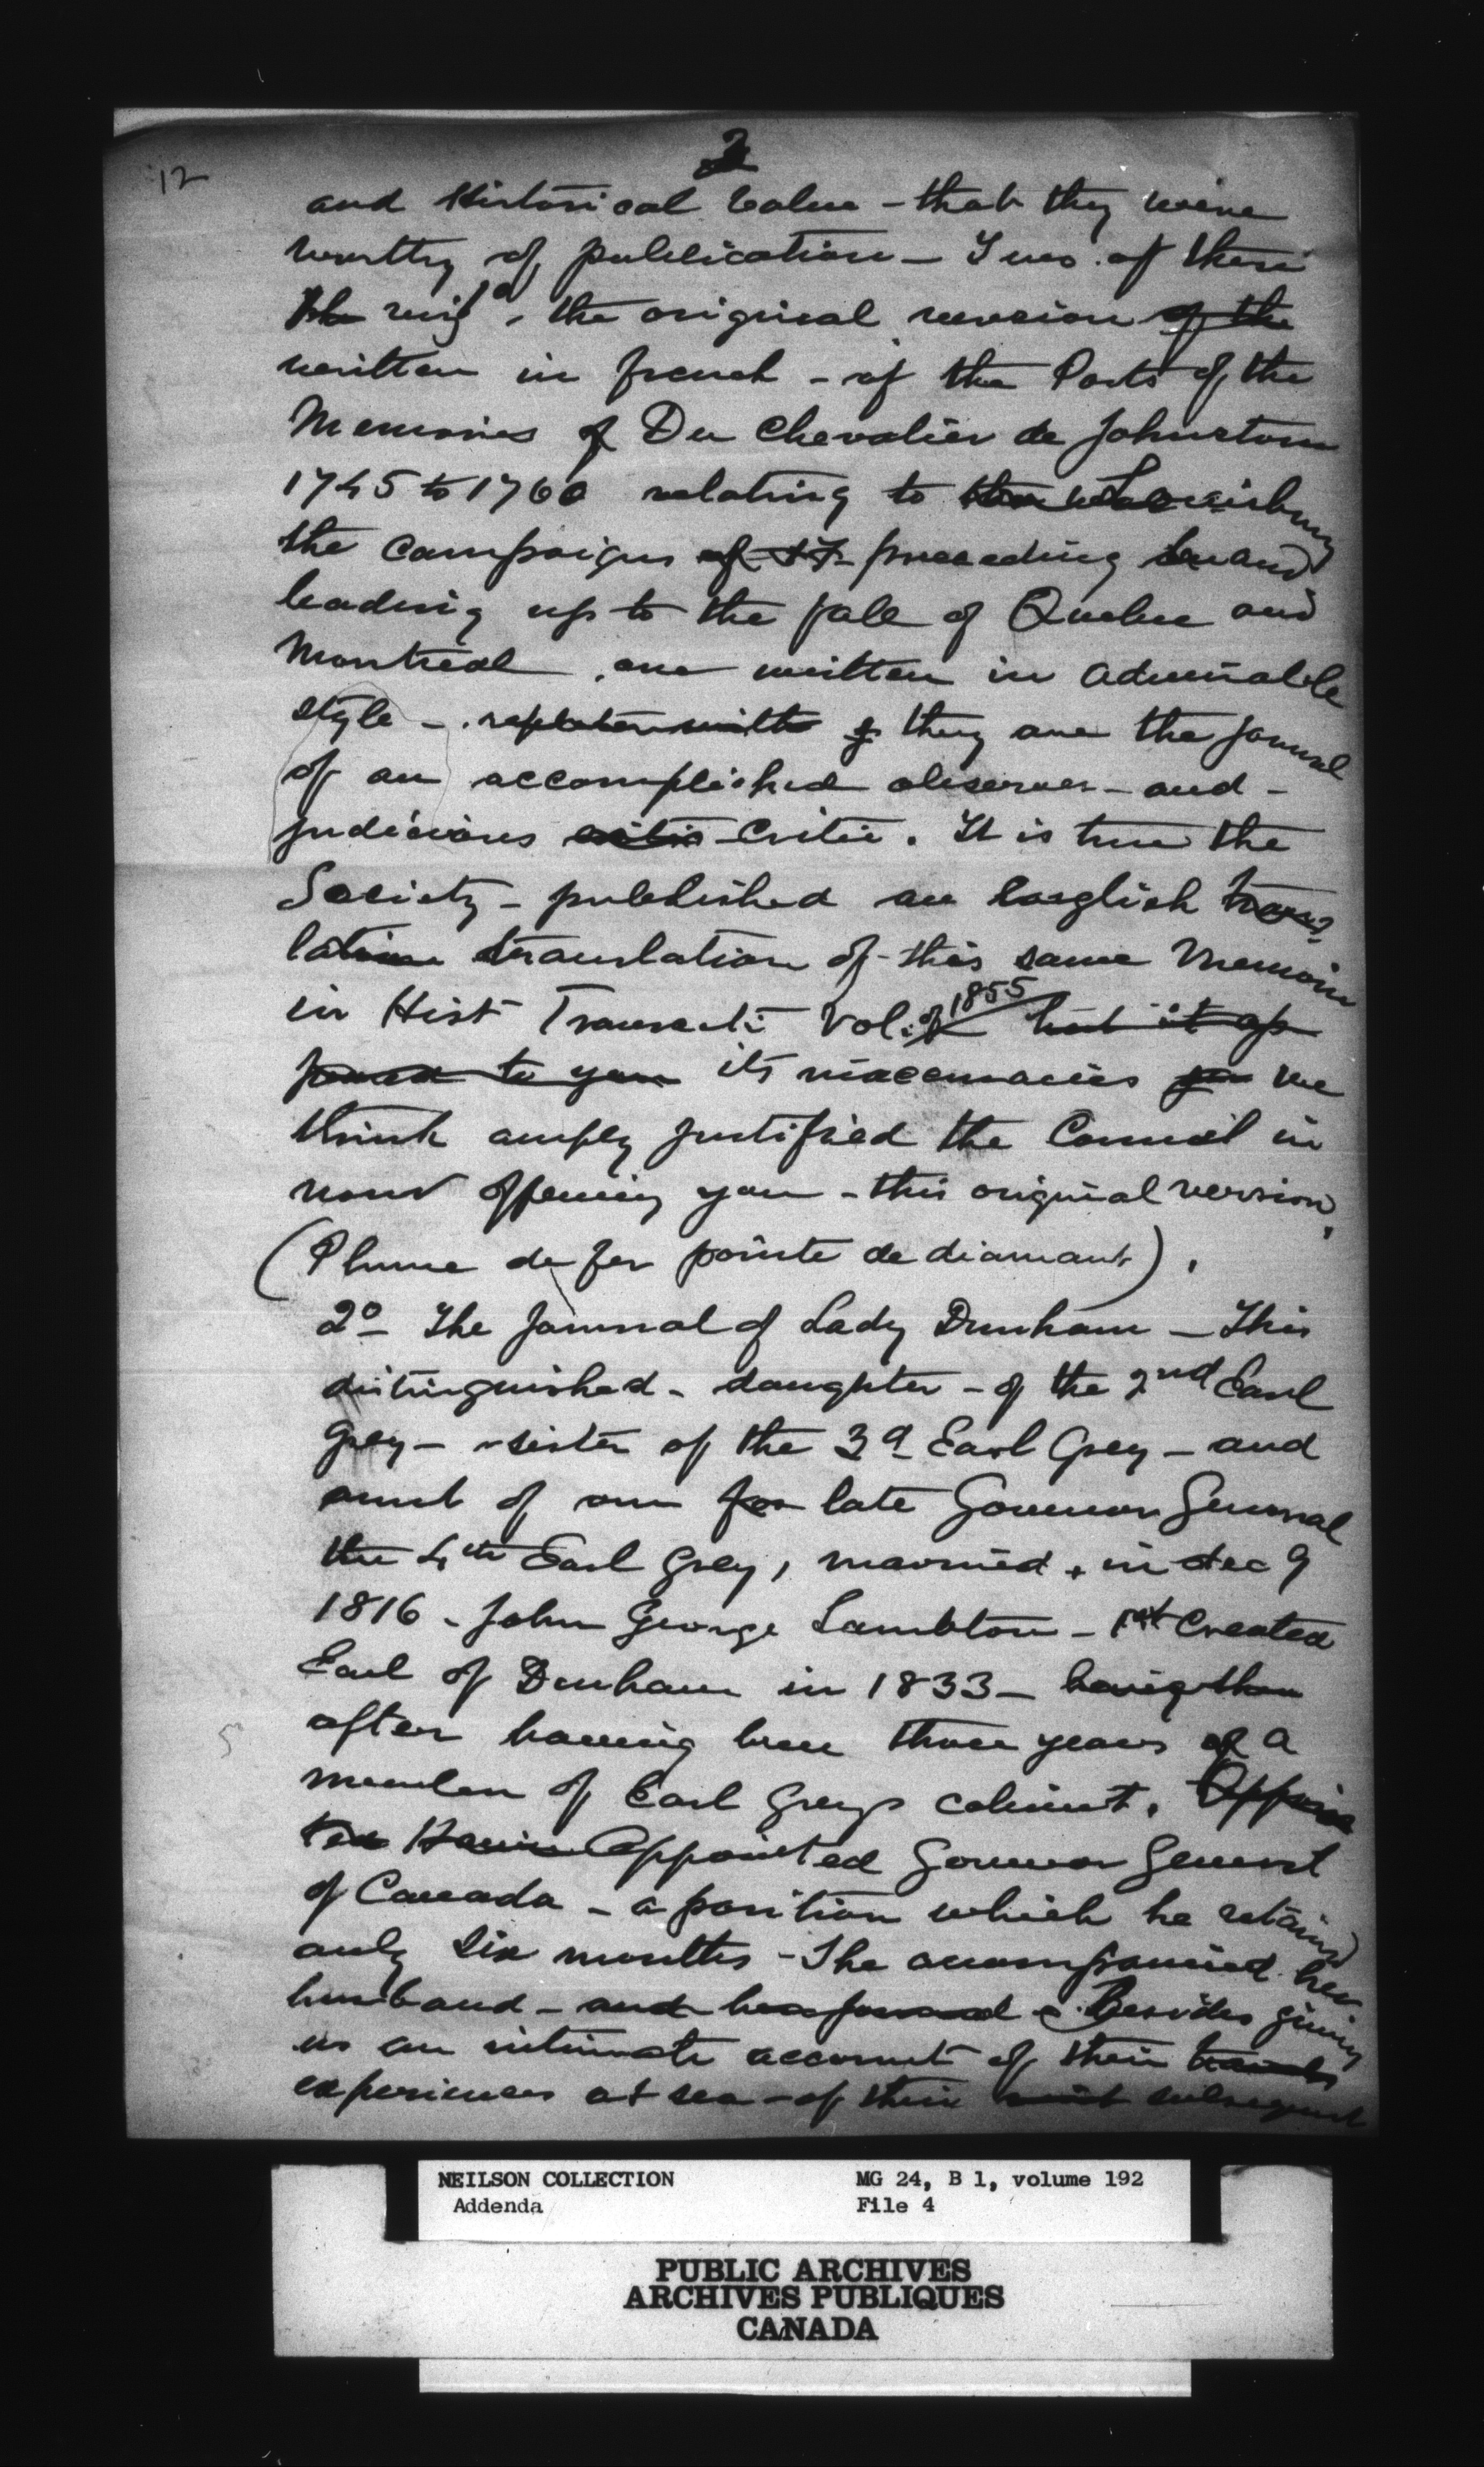 12
2
and Historical value - that they were
worthy of publication - Two of them
viz 1o, the original version of the
written in french - of the Parts of the
Memories of Du Chevalier de Johnstone
1745 to 1760 relating to Louisburg
the campaigns of preceding and
leading up to the fall of Quebec and
Montreal, are written in admirable
style - replete with & they are the journal
of an accomplished observer - and -
judicious critic critic. It is true the
Society - published an English trans-
lation translation of this same Memoire
in Hist Transacti Vol: of 1855 but it ap
peared to you its inaccuracies you we
think amply justified the Council in
now offering you - this original version,
(Plume de fer pointe de diamant).
2o- The Journal of Lady Durham - This
distinguished - daughter - of the 2nd Earl
Grey - sister of the 3d Earl Grey - and
aunt of our for late Governor General
the 4th Earl Grey, married, in dec 9
1816 - John George Lambton - 1st Created
Earl of Durham in 1833 - having then
after having been three years of a
member of Earl Greys cabinet. Appoin
ted Having Appointed Governor General
of Canada - a position which he retained
only six months - She accompanied her
husband - and has Besides giving
us an intimate account of their travels
experiences at sea - of their visit subsequent
5
NEILSON COLLECTION MG 24, B 1, volume 192
Addenda File 4
PUBLIC ARCHIVES
ARCHIVES PUBLIQUES
CANADA